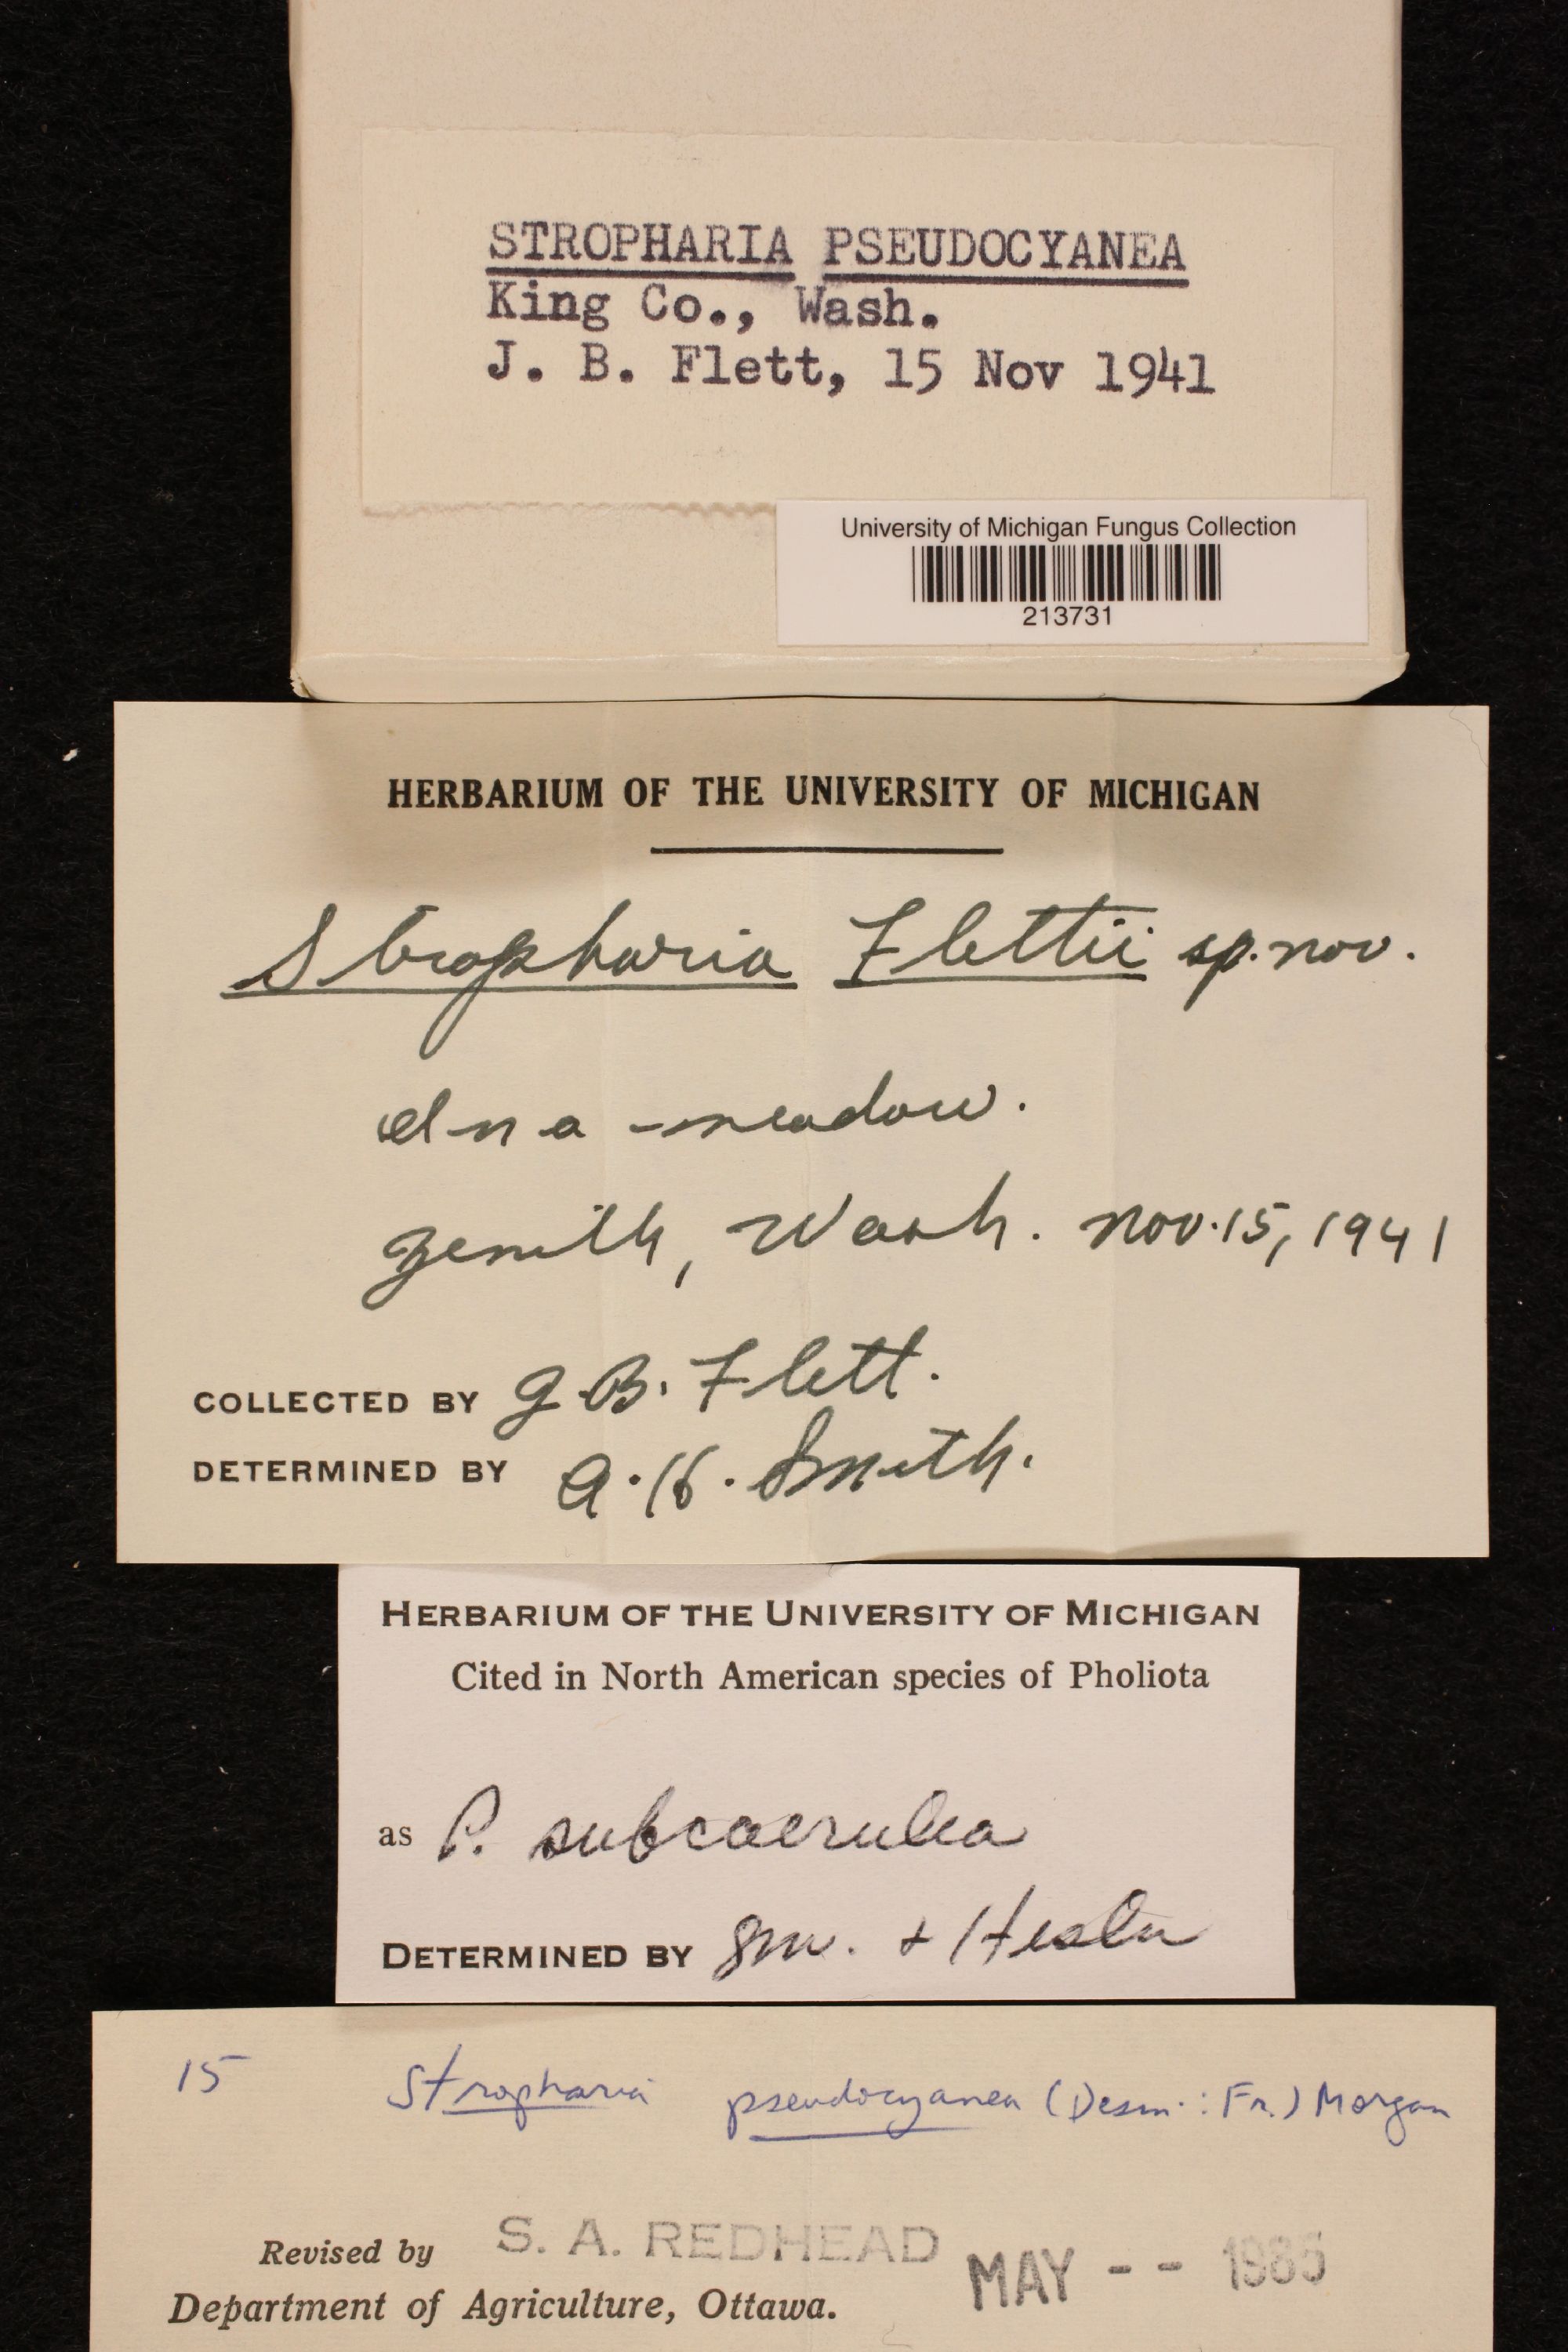 STROPHARIA PSEUDOCYANEA
King Co., Wash.
J. B. Flett, 15 Nov 1941
University of Michigan Fungus Collection
213731
HERBARIUM OF THE UNIVERSITY OF MICHIGAN
Stropharia Flettii sp. nov.
In a meadow.
Zenith, Wash. Nov. 15, 1941
COLLECTED BY J. B. Flett.
DETERMINED BY A. H. Smith.
HERBARIUM OF THE UNIVERSITY OF MICHIGAN
Cited in North American species of Pholiota
as P. subcaerulea
DETERMINED BY Sm. + Hesler
15 Stropharia pseudocyanea (Desm.: Fr.) Morgan
Revised by S. A. REDHEAD MAY -- 1985
Department of Agriculture, Ottawa.